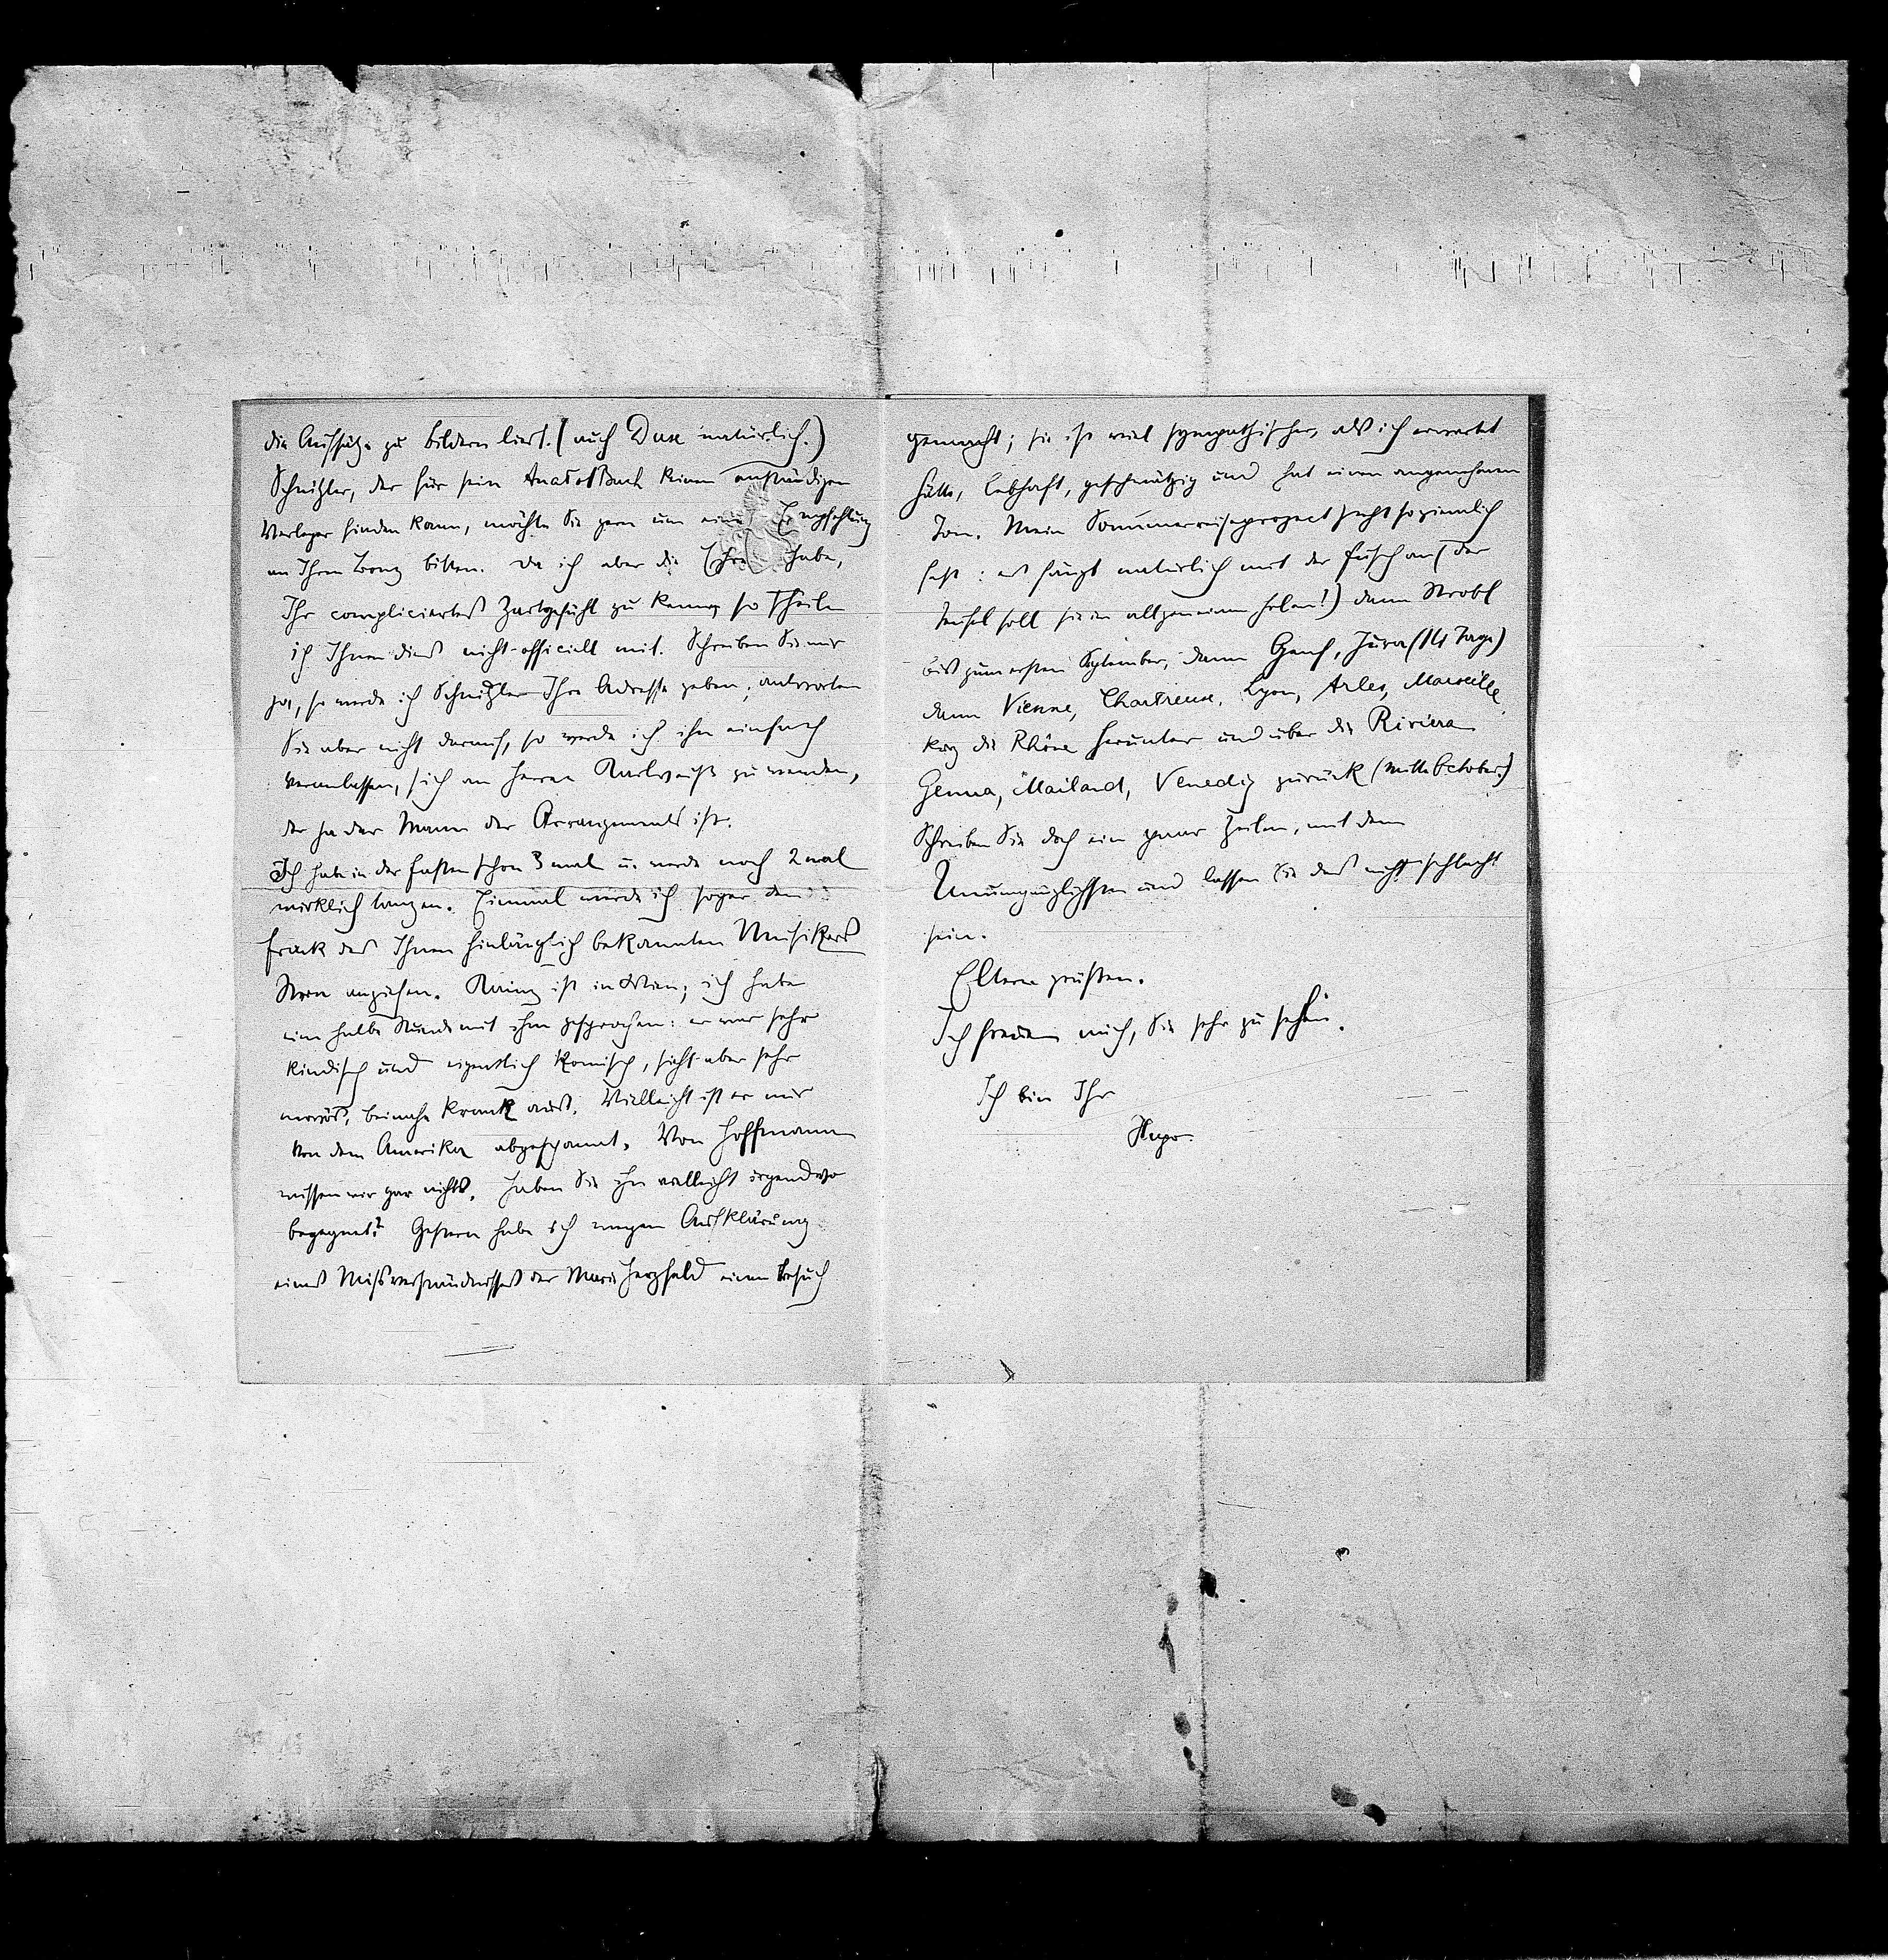 die Aufsätze zu Bildern liest. (auch Duse natürlich.)
Schnitzler, der für sein Anatolbuch keinen anständigen
Verleger finden kann, möchte Sie gern um eine Empfehlung
an Ihren bitten. Da ich aber die Ehre habe,
Ihr compliciertes Zartgefühl zu kennen, so theile
ich Ihnen dies nicht-officiell mit. Schreiben Sie mir
ja, so werde ich Schnitzler Ihre Adresse geben; antworten
Sie aber nicht darauf, so werde ich ihn einfach
veranlassen, sich an Herrn Karlweiß zu wenden,
der ja der Mann der Arrangements ist.
Ich habe in der Fasten schon 3 mal u. werde noch 2 mal
wirklich tanzen. Einmal werde ich sogar den
Frack des Ihnen hinlänglich bekannten Musikers
Stern anziehen. Kainz ist in Wien; ich habe
eine halbe Stunde mit ihm gesprochen: er war sehr
kindisch und eigentlich komisch, sieht aber sehr
nervös, beinahe krank aus. Vielleicht ist er nur
von dem Amerika abgespannt. Von Hoffmann
wissen wir gar nichts. Haben Sie ihn vielleicht irgendwo
begegnet? Gestern habe ich wegen Aufklärung
eines Missverständnisses der Marie Herzfeld einen Besuch
gemacht; sie ist viel sympathischer, als ich erwartet
hätte, lebhaft, geschwätzig und hat einen angenehmen
Ton. Mein Sommerreiseproject steht so ziemlich
fest: es fängt natürlich mit der Fusch an (der
Teufel soll sie im allgemeinen holen!) dann Strobl
bis zum ersten September, dann Genf, Jura (14 Tage)
dann Vienne, Chartreuse, Lyon, Arles, Marseille,
kurz die Rhône herunter und über die Riviera
Genua, Mailand, Venedig zurück (Mitte October.)
Schreiben Sie doch ein paar Zeilen, mit dem
Unumgänglichsten und lassen Sie das nicht schlecht
sein.
Eltern grüßen.
Ich freue mich, Sie sehr zu sehen.
Ich bin Ihr
Hugo.